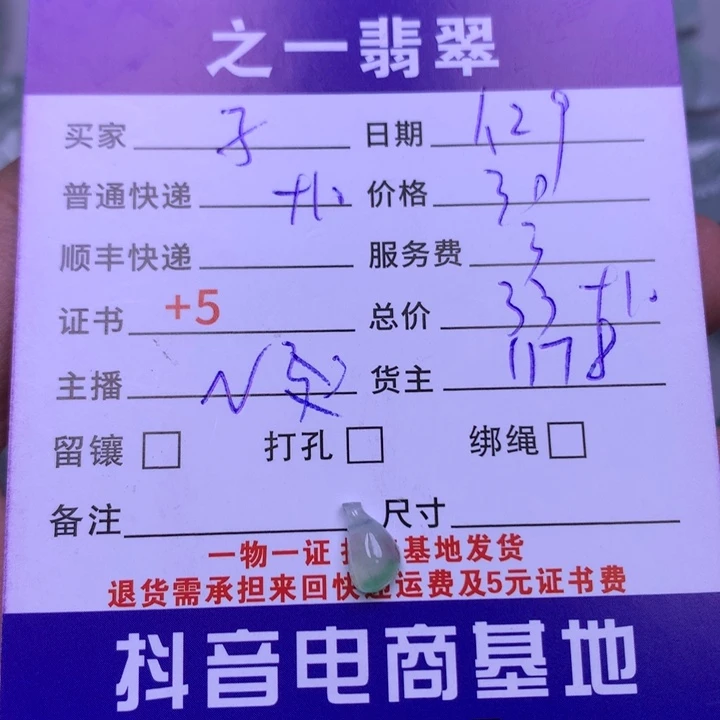 之一翡翠
买家 子 日期 1.29
普通快递 价格 30
顺丰快递 服务费 3
证书 +5 总价 33
主播 N 货主 1178
留镶 打孔 绑绳
备注 尺寸
一物一证 基地发货
退货需承担来回快递运费及5元证书费
抖音电商基地